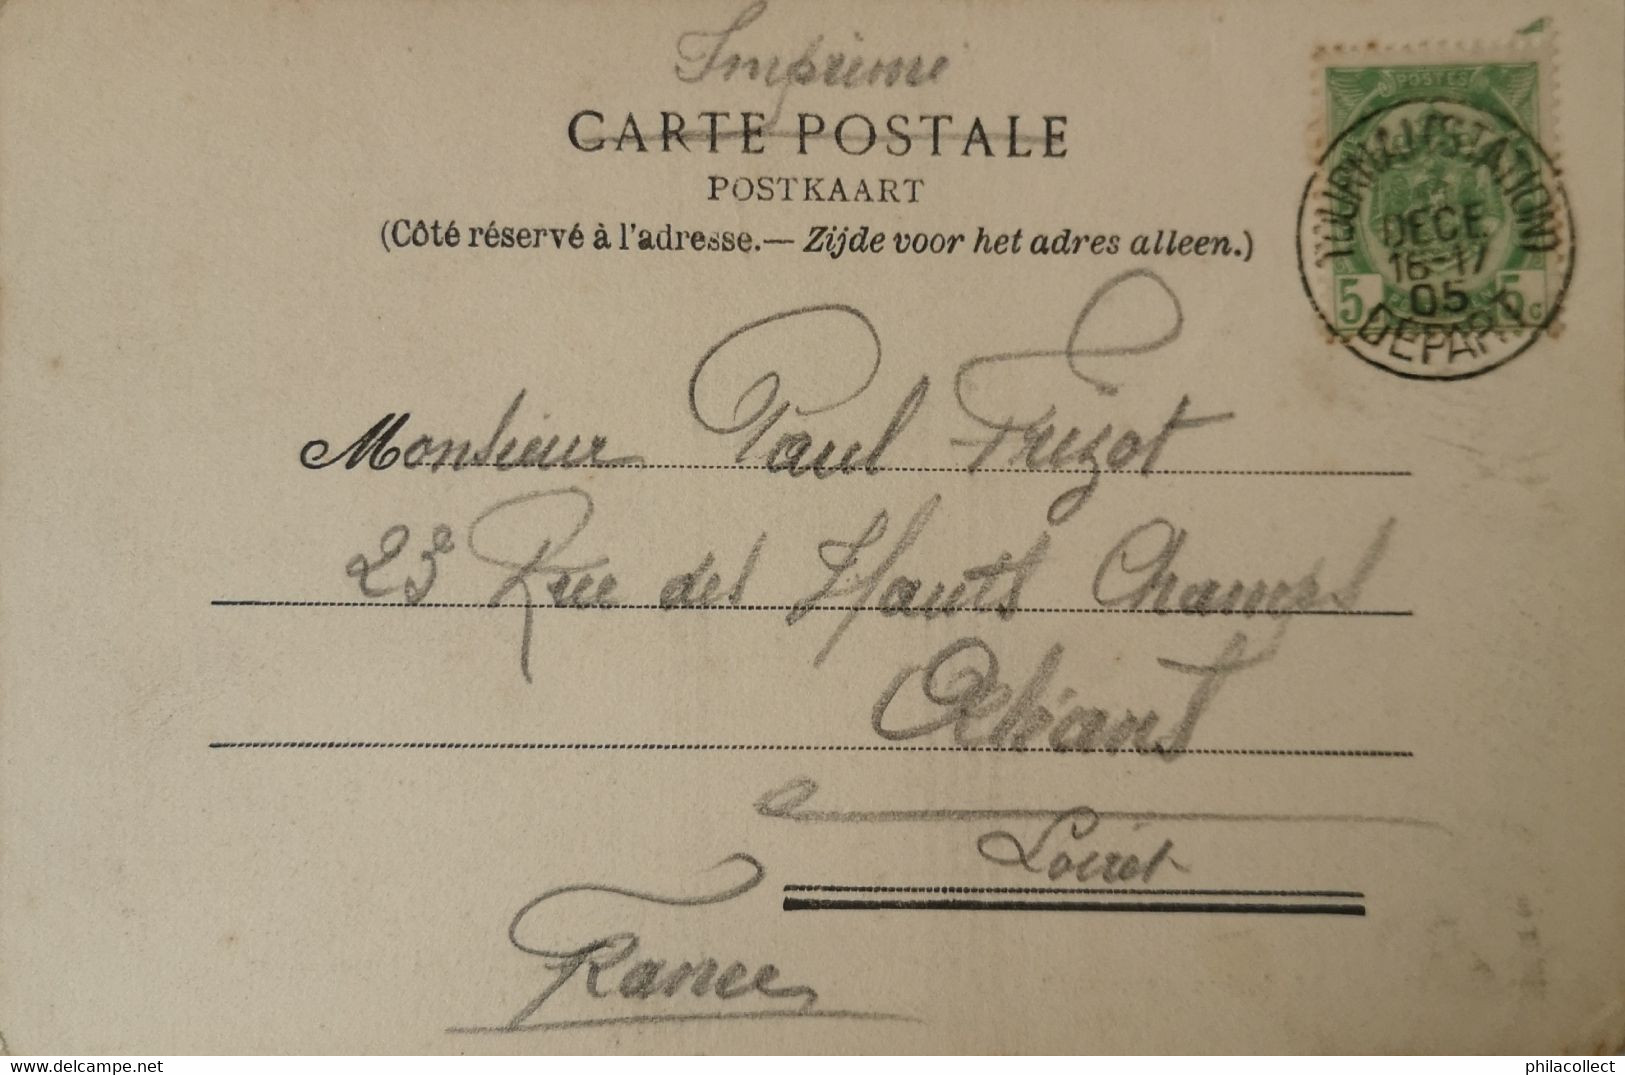 Imprimé
CARTE POSTALE
POSTKAART
(Côté réservé à l'adresse.— Zijde voor het adres alleen.)
POSTES
TOURNAI (STATION)
DECE
16-17
05
DEPART
5 5 c
Monsieur Paul Frizot
23 Rue des Hauts Champs
Orléans
Loiret
France
www.delcampe.net
philacollect